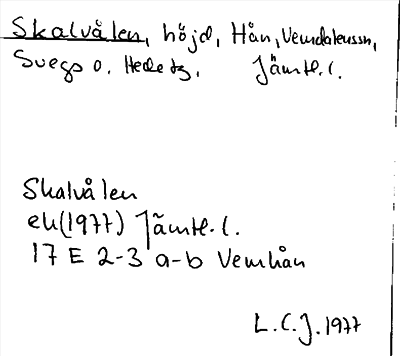 Skalvålen, höjd, Hån, Vemdalenssn,
Svegs o. Hede tg. Jämtl. l.
Skalvålen
ek(1977) Jämtl. l.
17 E 2-3 a-b Vemhån
L.C.J. 1977